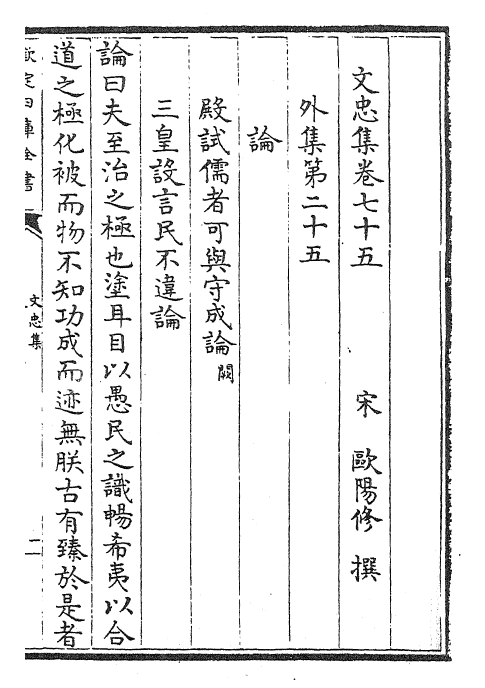 文忠集卷七十五 宋 歐陽修 撰
外集第二十五
論
殿試儒者可與守成論闕
三皇設言民不違論
論曰夫至治之極也塗耳目以愚民之識暢希夷以合
道之極化被而物不知功成而迹無朕古有臻於是者
欽定四庫全書 文忠集 二